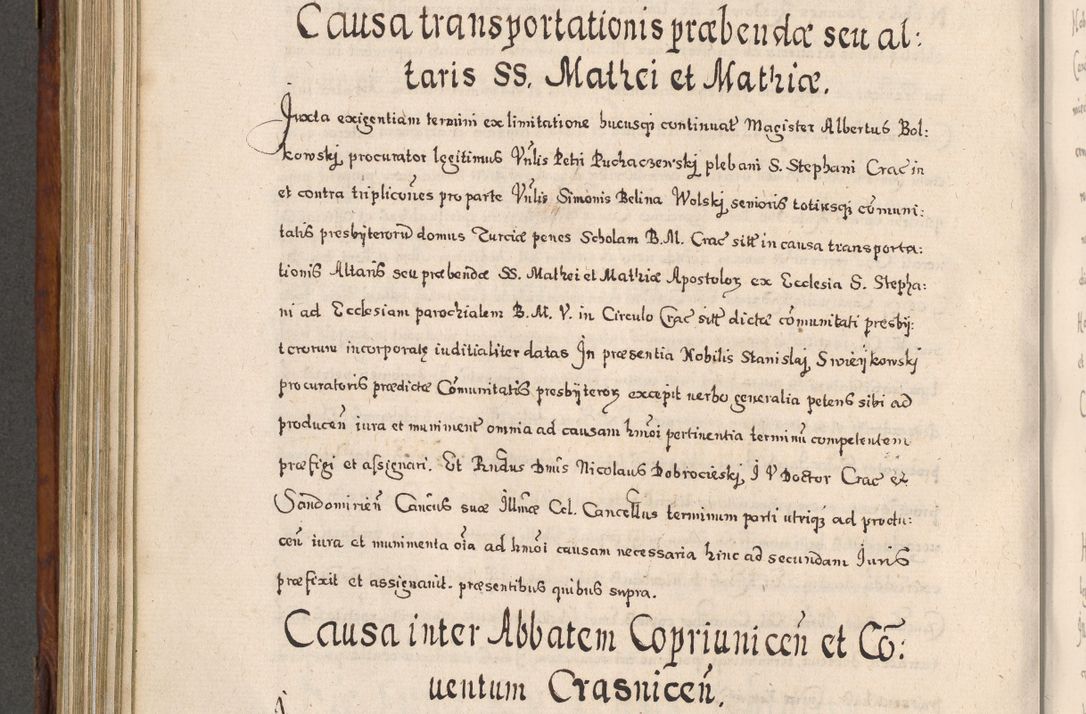 Causa transportationis præbendæ seu al:
taris SS. Mathei et Mathiæ.
Juxta exigentiam termini ex limitatione hucusq; continuat̃ Magister Albertus Bol:
kowskj procurator legitimus Vñlis Petri Puchaczewskj plebani S. Stephani Crac̃ in
et contra triplicões pro parte Vñlis Simonis Belina Wolskj senioris totiusq; cõmuni:
tatis presbÿterorũ domus Turciæ penes Scholam B.M. Crac̃ sitẽ in causa transporta:
tionis Altaris seu præbendæ SS. Mathei et Mathiæ Apostoloꝝ ex Ecclesia S. Stepha:
ni ad Ecclesiam parochialem B. M. V. in Circulo Crac̃ sitt̃ dictæ cõmunitati presbÿ:
terorum incorporatę iuditialiter datas Jn præsentia Nobilis Stanislaj Swieÿkowskj
procuratoris prædictæ Cõmunitatis presbÿteroꝝ excepit uerbo generalia petens sibi ad
producen̄ iura et muniment̃ omnia ad causam hm̃oi pertinentia terminũ competentem
præfigi et assignari. Et Rñdus Dnũs Nicolaus Dobrocieskj J V Doctor Crac̃ et
Sandomirien̄ Canc̃us suæ Jllmæ Cel. Cancell̃us terminum parti utriq; ad produ:
cen̄ iura et munimenta oĩa ad hm̃oi causam necessaria hinc ad secundam Juris
præfixit et assignauit. præsentibus quibus supra.
Causa inter Abbatem Copriunicen̄ et Cõ:
uentum Crasnicen̄.